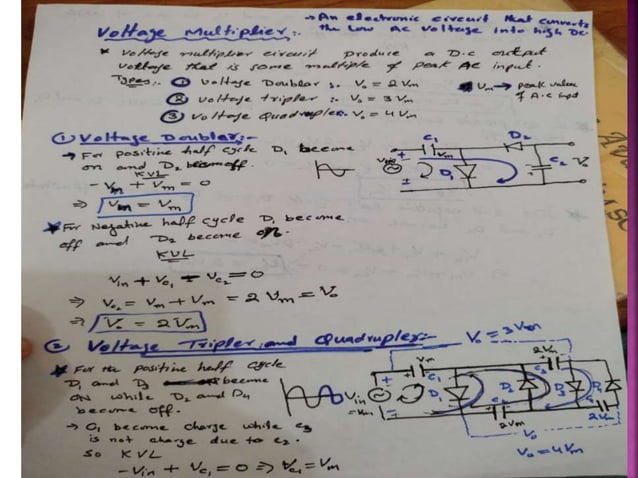 Voltage Multiplier:-
→ An electronic circuit that converts
the Low AC Voltage into high DC.
* Voltage multiplier circuit produce a D.C output
voltage that is some multiple of peak AC input.
Types:- ① Voltage Doubler :- V₀ = 2Vm
Vm → peak value
of A.C input
② Voltage tripler :- V₀ = 3Vm
③ Voltage Quadrupler:- V₀ = 4Vm
① Voltage Doubler:-
→ For positive half cycle D₁ become
on and D₂ off.
KVL
- Vm + Vm = 0
⇒ Vm = Vm
* For Negative half cycle D₁ become
off and D₂ become on.
KVL
Vin + Vc₁ - Vc₂ = 0
⇒ Vc₂ = Vm + Vm = 2Vm = V₀
⇒ V₀ = 2Vm
C₁ D₂
+ Vm
Vin D₁ C₂ V₀
② Voltage Tripler and Quadrupler:-
V₀ = 3Vm
* For the positive half cycle
D₁ and D₃ become
ON while D₂ and D₄
become off.
→ C₁ become charge while C₃
is not charge due to C₂.
So KVL
-Vin + Vc₁ = 0 ⇒ Vc₁ = Vm
Vm 2Vm
C₁ C₃
Vin
= Vm
D₁ D₂ D₃ D₄
C₂ C₄
2Vm 2Vm
V₀
V₀ = 4Vm